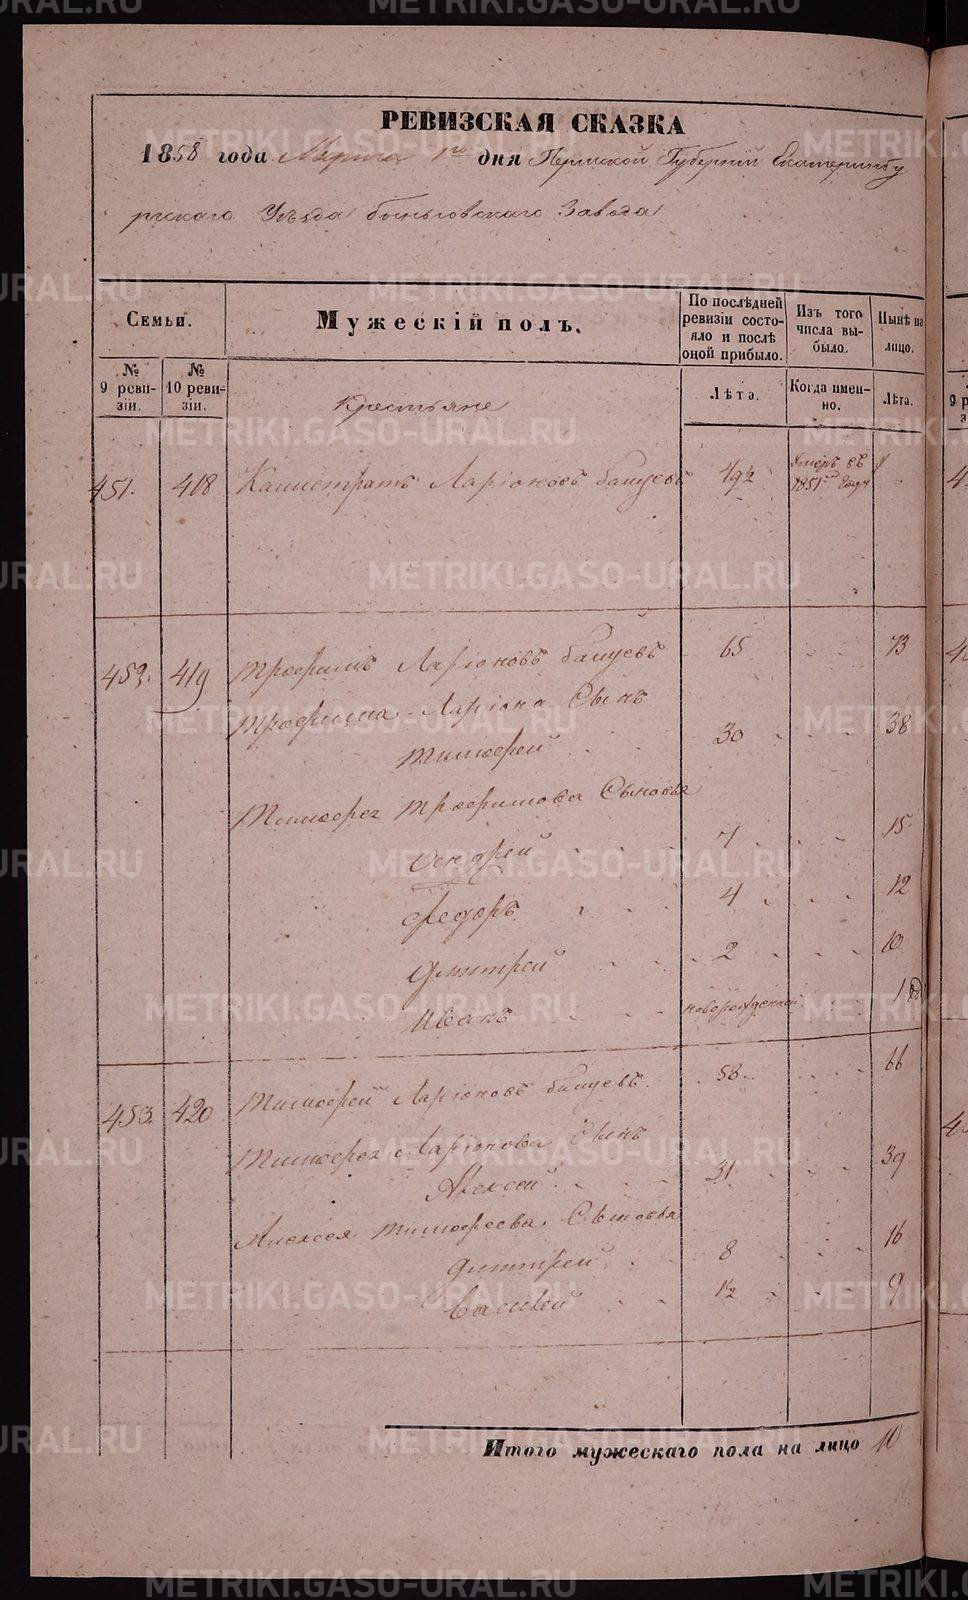 РЕВИЗСКАЯ СКАЗКА
1858 года Марта 1го дня Пермской Губернiи Екатеринбу
ргскаго Уѣзда быньговскаго Завода
Семьи.
Мужескiй полъ.
По послѣдней ревизiи состояло и послѣ оной прибыло.
Изъ того числа выбыло.
Нынѣ на лицо.
№ 9 ревизiи.
№ 10 ревизiи.
Лѣта.
Когда именно.
Лѣта.
Крестьяне
451. 418 Калистратъ Ларiоновъ 49½ Умеръ въ 1851мъ году
452. 419 Трофимъ Ларiоновъ 65 73
Трофима Ларiона Сынъ
Тимофей 30 38
Тимофея Трофимова Сыновья
Андрей 7 15
Федоръ 4 12
Дмитрей 2 10
Иванъ новорожденной
453. 420 Тимофей Ларiоновъ 58 66
Тимофея Ларiонова Сынъ
Алексей 31 39
Алексея Тимофеева Сыновья
Дмитрей 8 16
Василей 1½ 9
Итого мужескаго пола на лицо 10
METRIKI.GASO-URAL.RU